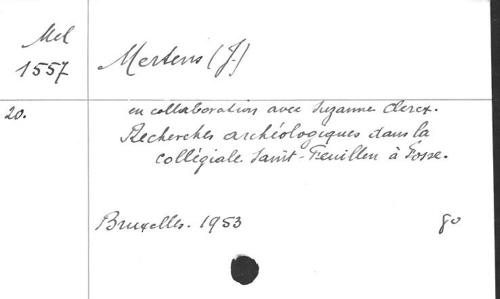 Mel
1557
Mertens (J.)
20.
en collaboration avec Suzanne Clercx.
Recherches archéologiques dans la
collégiale Saint-Feuillen à Fosse.
Bruxelles. 1953
80